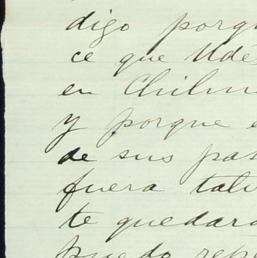 digo porqu
ce que Udé
en Chilm
y porque e
de sus pa
fuera talv
te quedara
puedo repe